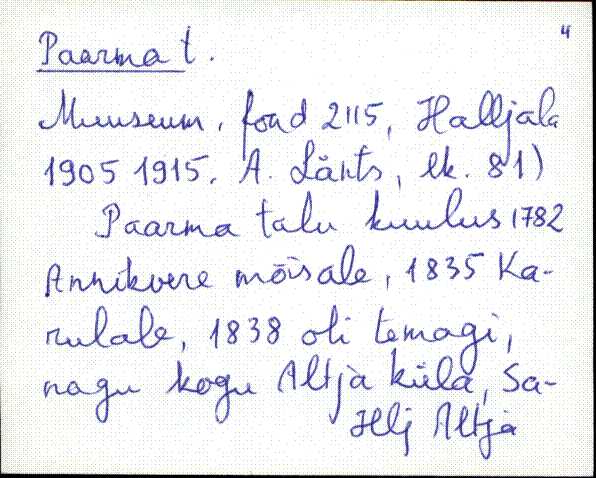 4
Paarma t.
Muuseum, fond 2115, Halljala
1905 1915. A. Länts, lk. 81)
Paarma talu kuulus 1782
Annikvere mõisale, 1835 Ka-
rulale, 1838 oli temagi,
nagu kogu Altja küla, Sa-
Hlj Altja